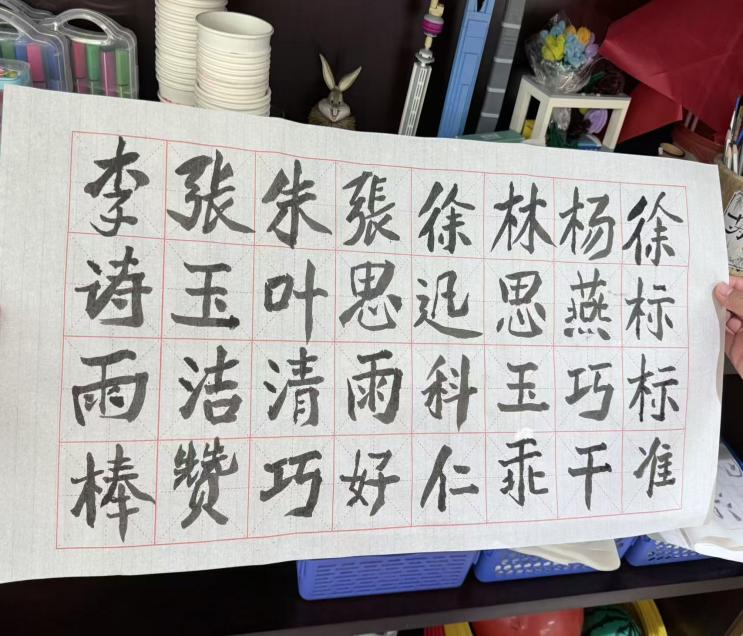 徐标标准
杨燕巧干
林思玉乖
徐迟科仁
張思雨好
朱叶清巧
张玉洁赞
李诗雨棒